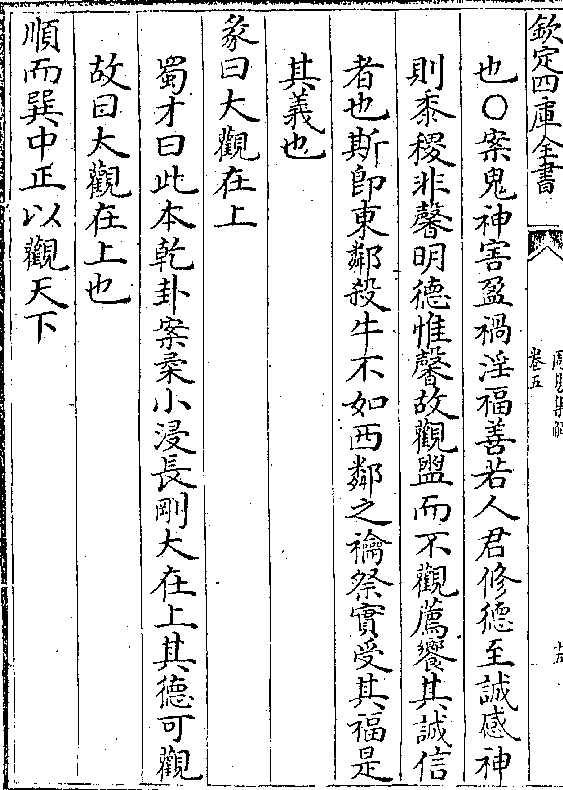 欽定四庫全書
周易集解
卷五
十五
也○案鬼神害盈禍淫福善若人君修德至誠感神
則黍稷非馨明德惟馨故觀盥而不觀薦饗其誠信
者也斯即東鄰殺牛不如西鄰之禴祭實受其福是
其義也
彖曰大觀在上
蜀才曰此本乾卦案柔小浸長剛大在上其德可觀
故曰大觀在上也
順而巽中正以觀天下